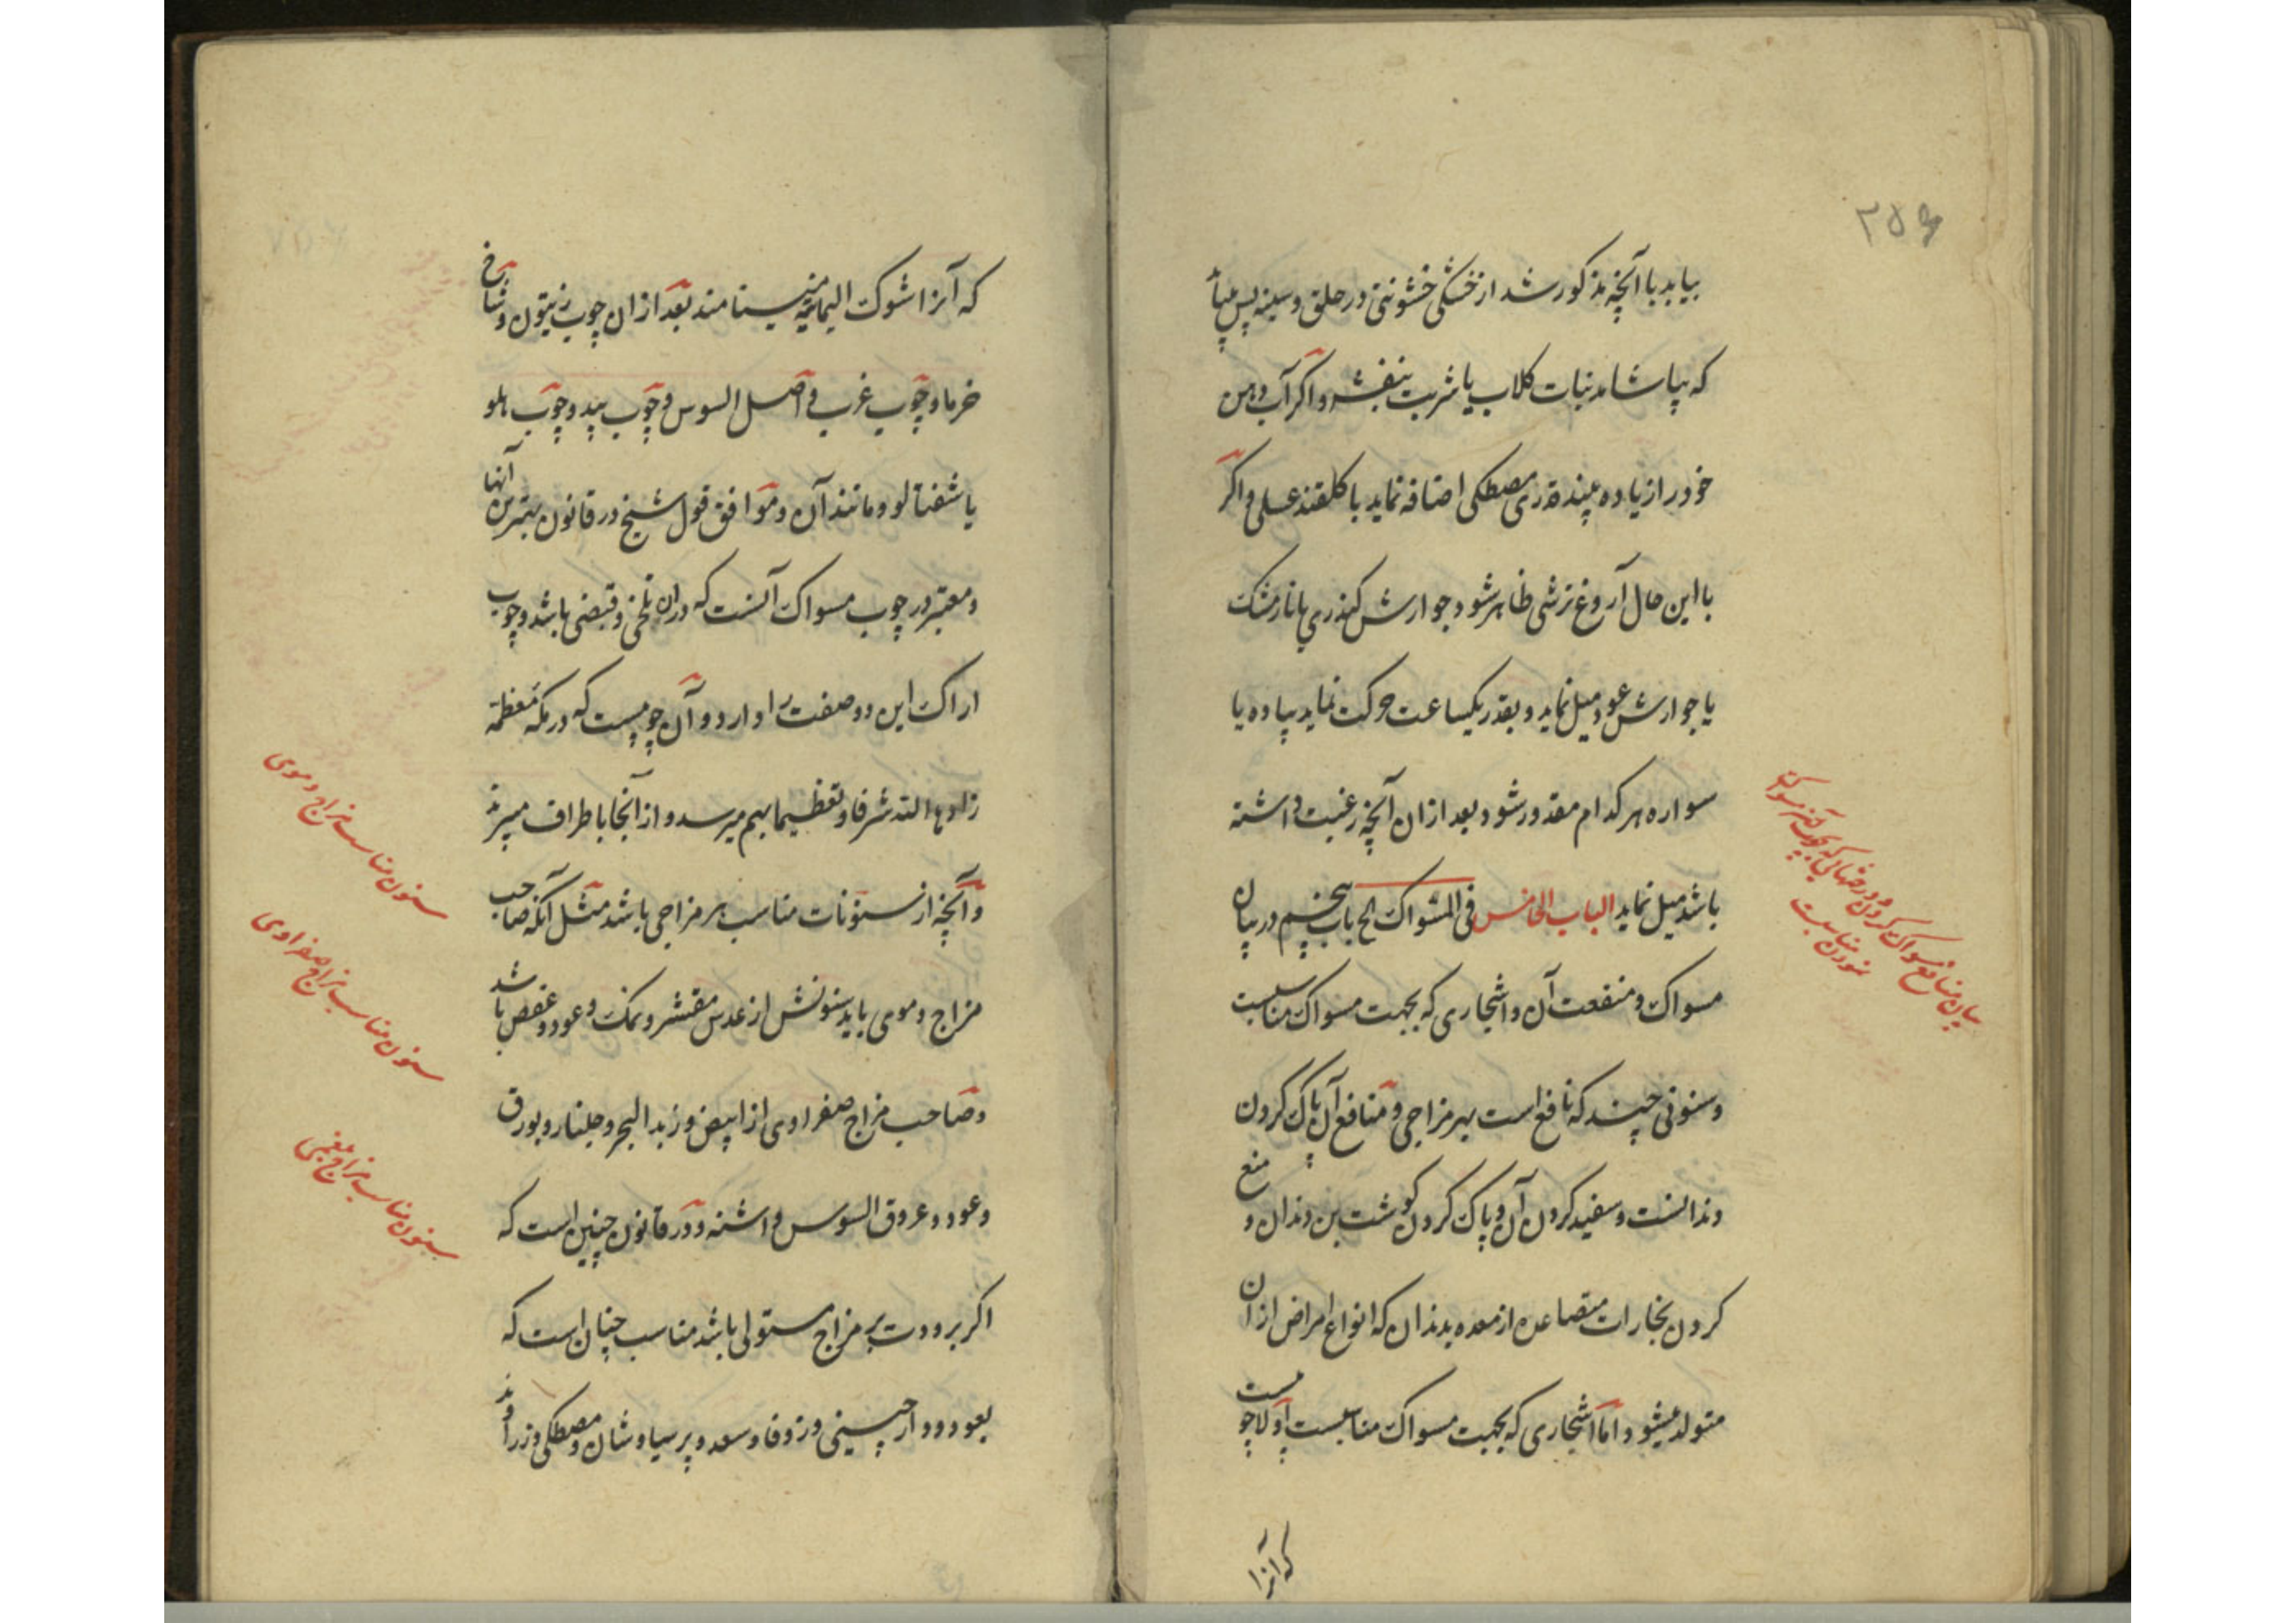 ۲۵۶
بیابد با آنچه مذکور شد از خشکی خشونتی در حلق و سینه پس
که بیاشامد نبات کلاب یا شربت بنفشه و اکر آب دهن
خود را زیاده بیند قدری مصطکی اضافه نماید با کلقند عسلی و اکر
با این حال آروغ ترشی ظاهر شود جوارش کندری یا نارمشک
یا جوارش عود میل نماید و بقدر یکساعت حرکت نماید پیاده یا
سواره هر کدام مقدور شود بعد ازان آنچه رغبت داشته
باشد میل نماید الباب الخامس فی المسواک الخ باب پنجم در بیان
مسواک و منفعت آن و اشجاری که بجهت مسواک مناسبست
و سنونی چند که نافع است بهر مزاجی و منافع آن پاک کردن
دندانست و سفید کردن آن و پاک کردن کوشت بن دندان و منع
کردن بخارات متصاعده از معده بدندان که انواع امراض از آن
متولد میشود و اما اشجاری که بجهت مسواک مناسبست اولا چوبیست
که آنرا
بیان منافع مسواک کردن و درختهائی که بجهت مسواک
نمودن مناسبست
که آنرا شوک الیمانیه مینامند بعد ازان چوب زیتون و شاخ
خرما و چوب غرب و اصل السوس و چوب بید و چوب هلو
یا شفتالو و مانند آن و موافق قول شیخ در قانون بهترین آنها
و معتبر در چوب مسواک آنست که دران تلخی و قبضی باشد و چوب
اراک این دو صفت را دارد و آن چوبیست که در مکه معظمه
زادها الله شرفا و تعظیما بهم میرسد و از آنجا باطراف میبرند
و آنچه از سنونات مناسب هر مزاجی باشد مثل آنکه صاحب
مزاج دموی باید سنونش از عدس مقشر و نمک و عود و عفص باشد
و صاحب مزاج صفراوی از ابیض و زبد البحر و جلنار و بورق
و عود و عروق السوس و اشنه و در قانون چنین است که
اکر برودت بر مزاج مستولی باشد مناسب چنان است که
بعود و دارچینی و زوفا و سعد و پرسیاوشان و مصطکی و زراوند
سنون مناسب مزاج دموی
سنون مناسب مزاج صفراوی
سنون مناسب مزاج بلغمی